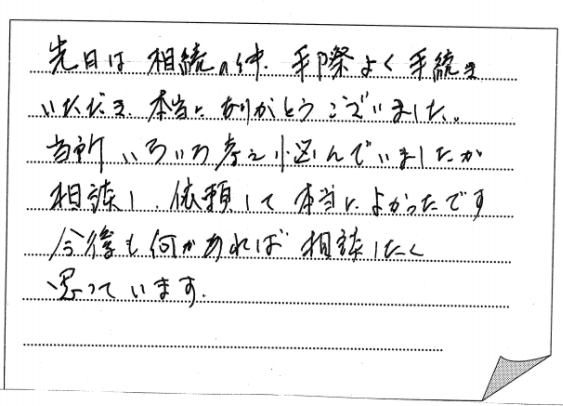 先日は相続の件、手際よく手続き
いただき、本当にありがとうございました。
当所いろいろ考え悩んでいましたが
相談し、依頼して本当によかったです
今後も何かあれば相談したく
思っています。